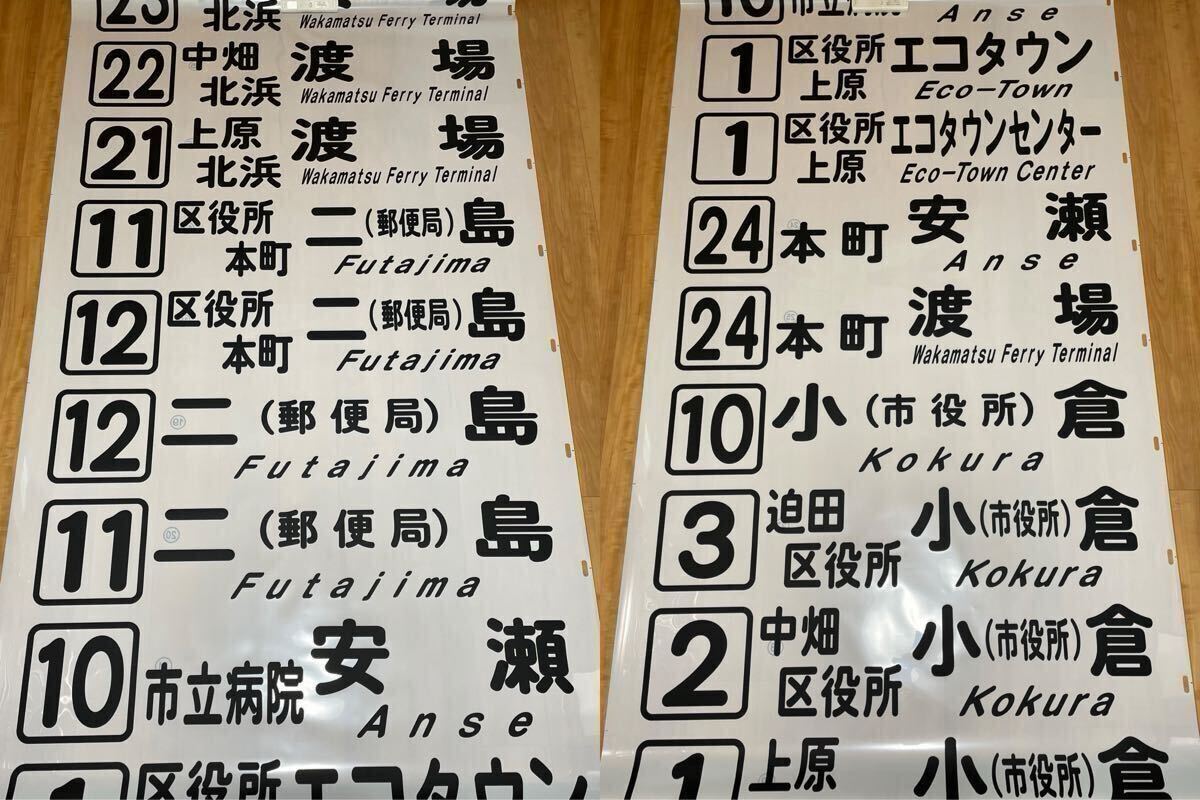 23 北浜 場
Wakamatsu Ferry Terminal
22 中畑 北浜 渡場
Wakamatsu Ferry Terminal
21 上原 北浜 渡場
Wakamatsu Ferry Terminal
11 区役所 本町 二(郵便局)島
Futajima
12 区役所 本町 二(郵便局)島
Futajima
12 二(郵便局)島
19
Futajima
11 二(郵便局)島
20
Futajima
10 市立病院 安瀬
Anse
1 区役所 エコタウン
10 市立病院
Anse
1 区役所 上原 エコタウン
Eco-Town
1 区役所 上原 エコタウンセンター
Eco-Town Center
24 本町 安瀬
Anse
24 本町 渡場
25
Wakamatsu Ferry Terminal
10 小(市役所)倉
Kokura
3 迫田 区役所 小(市役所)倉
Kokura
2 中畑 区役所 小(市役所)倉
Kokura
1 上原 小(市役所)倉